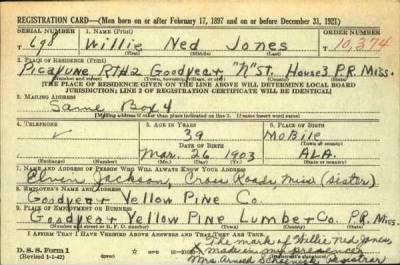 REGISTRATION CARD—(Men born on or after February 17, 1897 and on or before December 31, 1921)
SERIAL NUMBER 1. NAME (Print) ORDER NUMBER
U 698 Willie Ned Jones T 10,374
(First) (Middle) (Last)
2. PLACE OF RESIDENCE (Print)
Picayune RT#2 Goodyear "N" St. House 3 P.R. Miss.
(Number and street) (Town, township, village, or city) (County) (State)
[THE PLACE OF RESIDENCE GIVEN ON THE LINE ABOVE WILL DETERMINE LOCAL BOARD
JURISDICTION; LINE 2 OF REGISTRATION CERTIFICATE WILL BE IDENTICAL]
3. MAILING ADDRESS
Same Box 4
[Mailing address if other than place indicated on line 2. If same insert word same]
4. TELEPHONE 5. AGE IN YEARS 6. PLACE OF BIRTH
39 Mobile
DATE OF BIRTH (Town or county)
Mar. 26 1903 ALA.
(Exchange) (Number) (Mo.) (Day) (Yr.) (State or country)
7. NAME AND ADDRESS OF PERSON WHO WILL ALWAYS KNOW YOUR ADDRESS
Jackson, Cross Roads, Miss (sister)
8. EMPLOYER'S NAME AND ADDRESS
Goodyear Yellow Pine Co.
9. PLACE OF EMPLOYMENT OR BUSINESS
Goodyear Yellow Pine Lumber Co. P.R. Miss.
(Number and street or R. F. D. number) (Town) (County) (State)
I AFFIRM THAT I HAVE VERIFIED ABOVE ANSWERS AND THAT THEY ARE TRUE.
D. S. S. Form 1 The mark of Willie Ned Jones
(Revised 1-1-42) made in my presence
Mrs Registrar